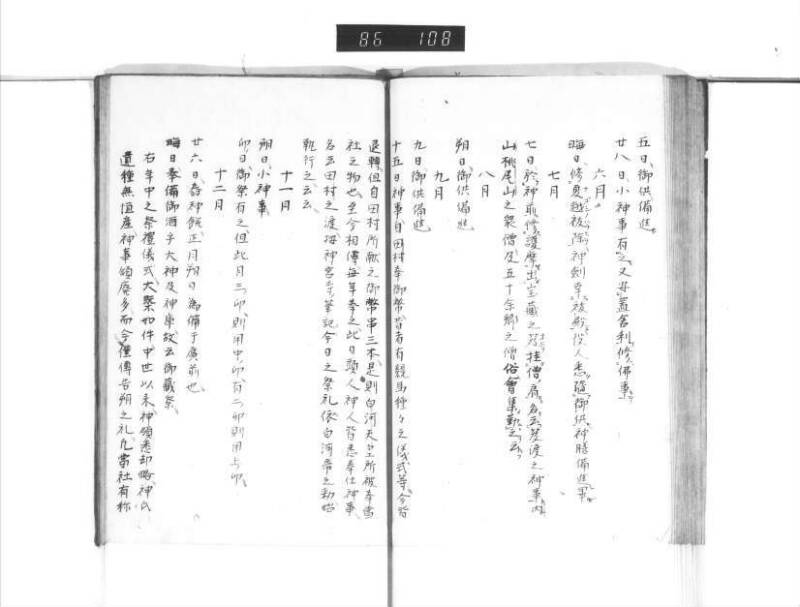 86 108
五日、御供備進
廿八日、小神事有之、又井蓋舎利修佛事
六月
晦日修夏越祓除、神剣幸祓殿、役人悉随、御供神膳備進畢
七月
七日於神前修護摩、出宝蔵之
山桃尾山之衆僧及五十余郷之僧俗會集勤之云々
八月
朔日、御供備進
九月
九日御供備進
十五日神事自田村奉御幣、昔者有競馬種々之儀式等、今皆
退轉、但自田村所献之御幣串三本、是則白河天皇所被奉當
社之物也、至今相傳毎年奉之、此日頭人神人皆悉奉仕神事、
名云田村之渡、按神宮寺筆記今日之祭礼依白河帝之勅始
執行之云云
十一月
朔日、小神事
卯日御祭有之、但此月三卯則用中卯、有二卯則用上卯
十二月
廿六日春神餝、正月朔日為備于廣前也
晦日奉備御酒于大神及神庫、故云御蔵祭
右年中之祭禮儀式大槩如件、中世以来神領悉却略、神氏
遺種無恒産、神事傾廃多、而今僅傳告朔之礼、凡當社有称